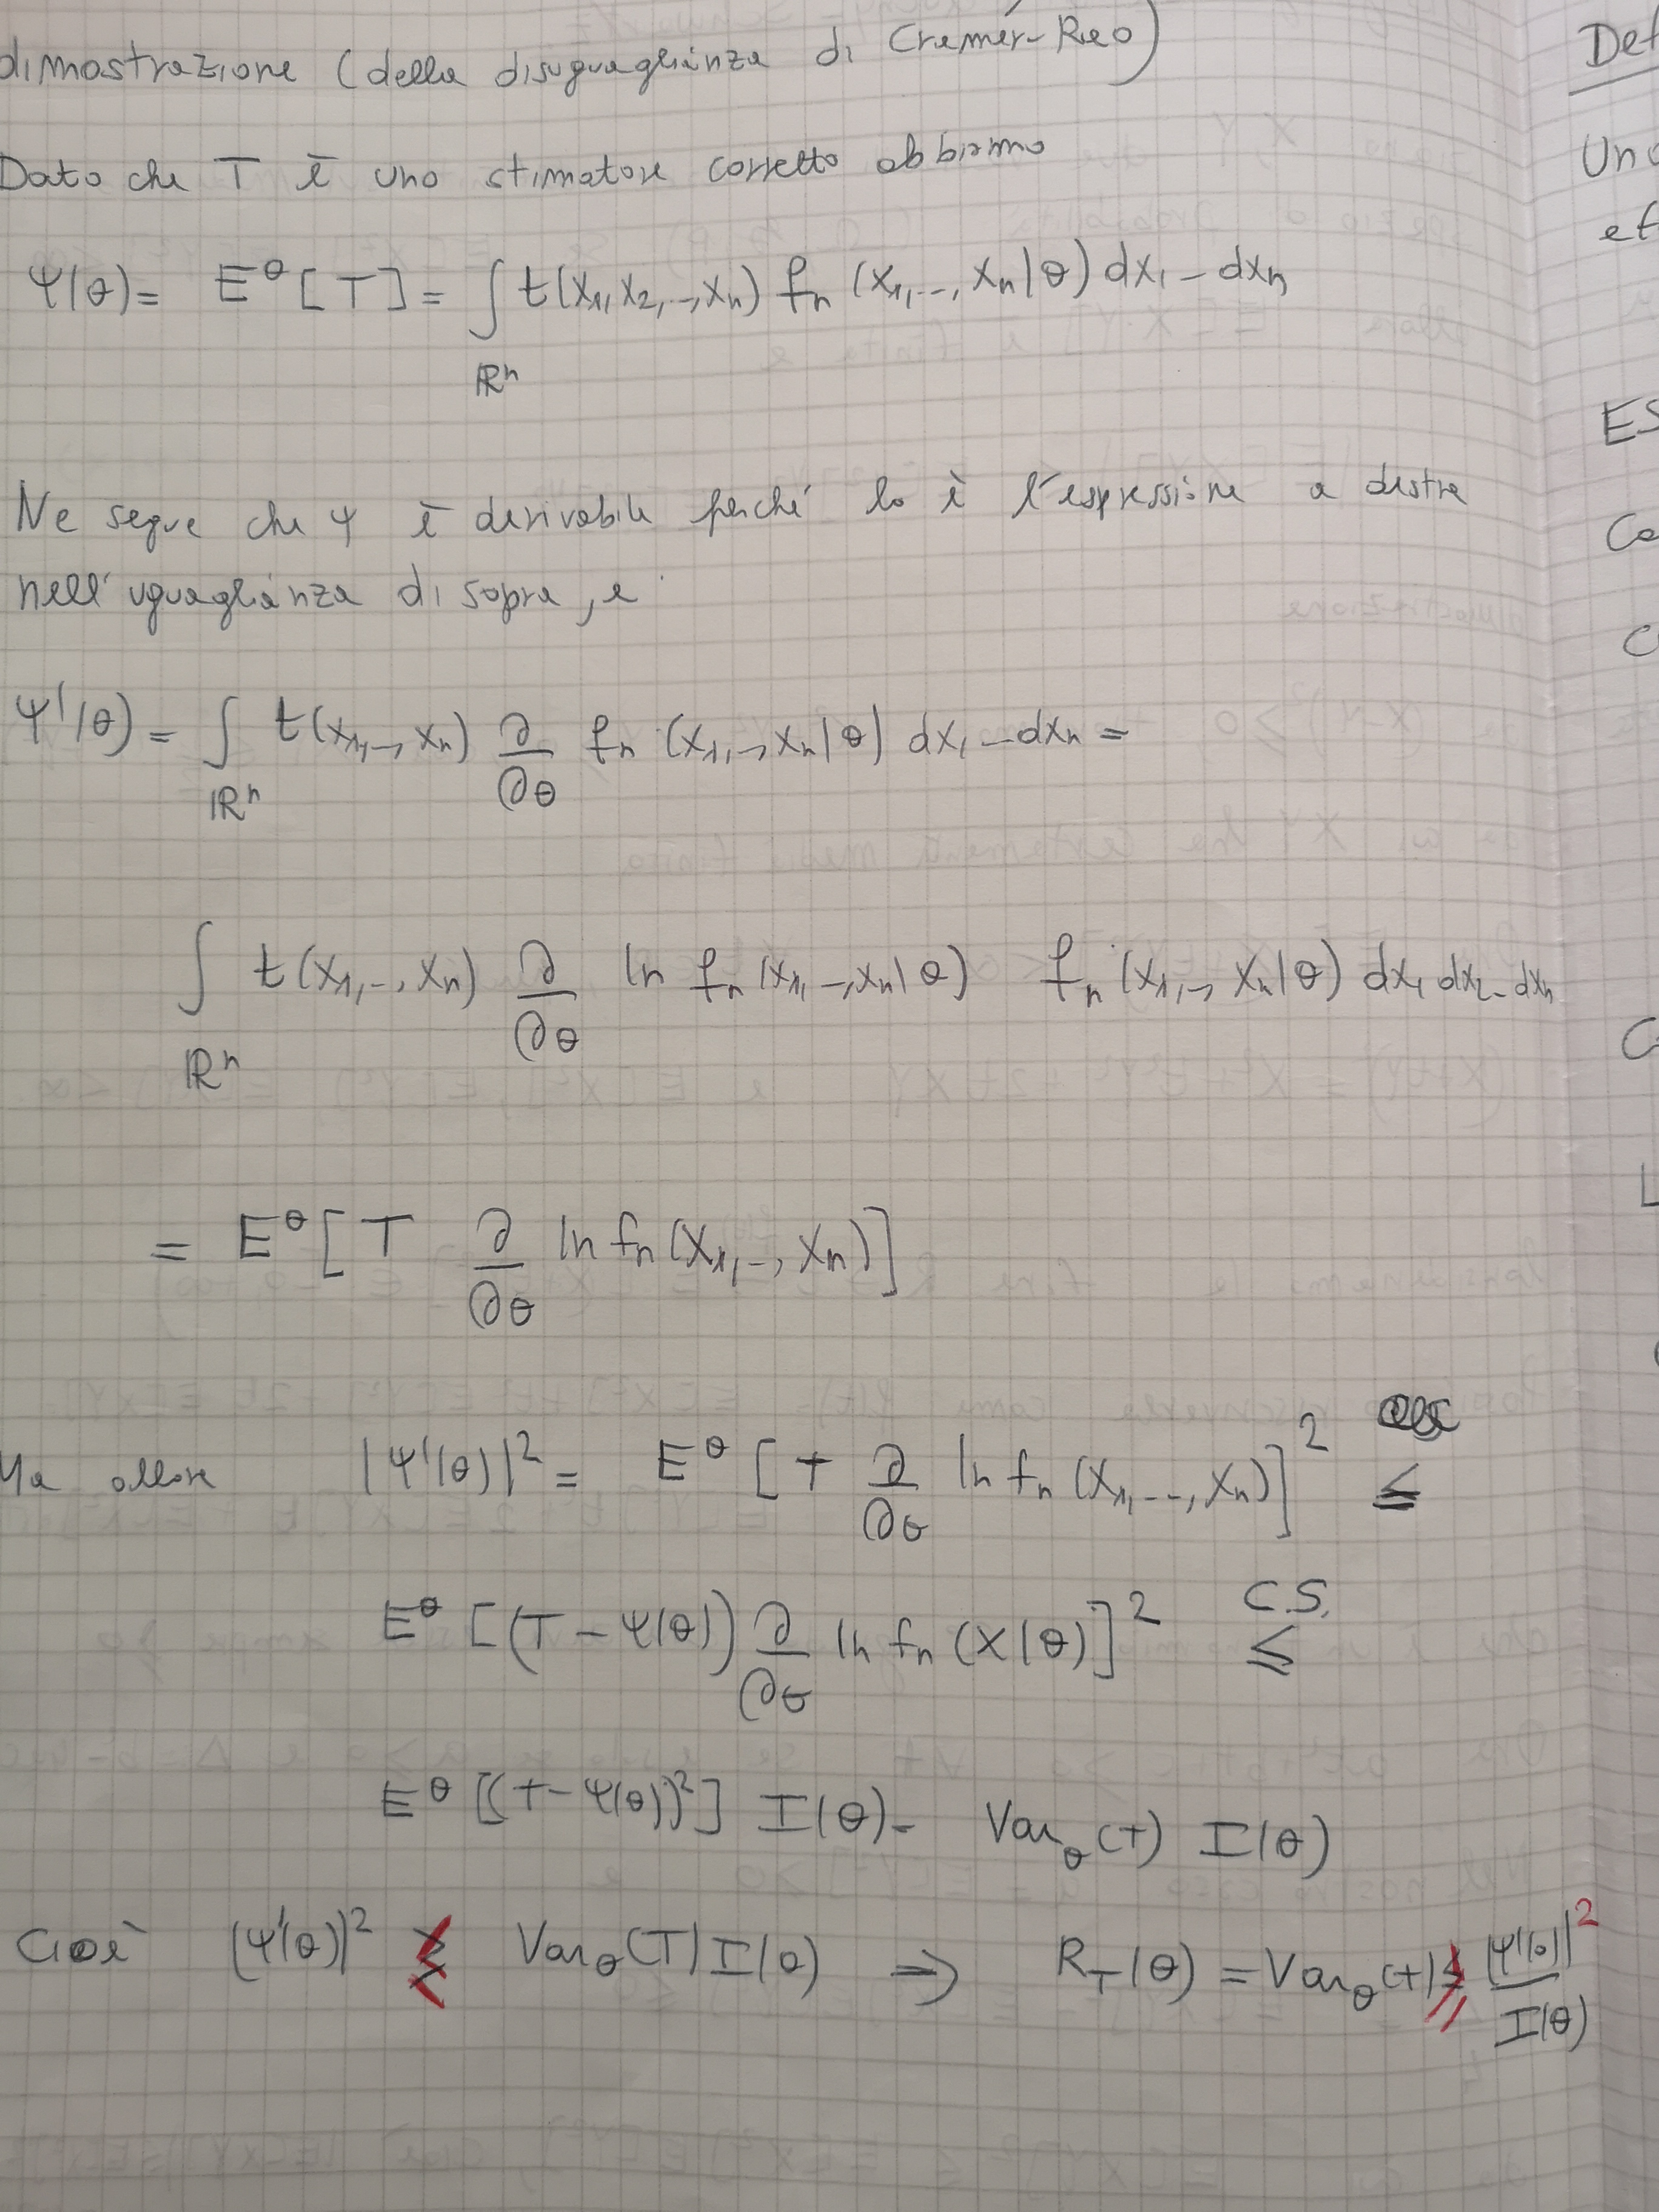 dimostrazione (della disuguaglianza di Cramér-Rao)
Dato che T è uno stimatore corretto abbiamo
Ψ(θ) = E^θ[T] = ∫_{ℝ^n} t(x₁,x₂,..,xₙ) fₙ(x₁,..,xₙ|θ) dx₁ – dxₙ
Ne segue che Ψ è derivabile perché lo è l'espressione a destra
nell'uguaglianza di sopra, e
Ψ'(θ) = ∫_{ℝ^n} t(x₁,..,xₙ) ∂/∂θ fₙ(x₁,..,xₙ|θ) dx₁ – dxₙ =
∫_{ℝ^n} t(x₁,..,xₙ) ∂/∂θ ln fₙ(x₁,..,xₙ|θ) fₙ(x₁,..,xₙ|θ) dx₁ dx₂ – dxₙ
= E^θ[T ∂/∂θ ln fₙ(X₁,..,Xₙ)]
Ma allora |Ψ'(θ)|² = E^θ[T ∂/∂θ ln fₙ(X₁,..,Xₙ)]² ≤
E^θ[(T – Ψ(θ)) ∂/∂θ ln fₙ(X|θ)]² C.S. ≤
E^θ[(T – Ψ(θ))²] I(θ) – Var_θ(T) I(θ)
Cioè |Ψ'(θ)|² ≤ Var_θ(T) I(θ) ⇒ R_T(θ) = Var_θ(T) ≥ |Ψ'(θ)|²/I(θ)
Def
Un
ef
ES
Co
C
C
L